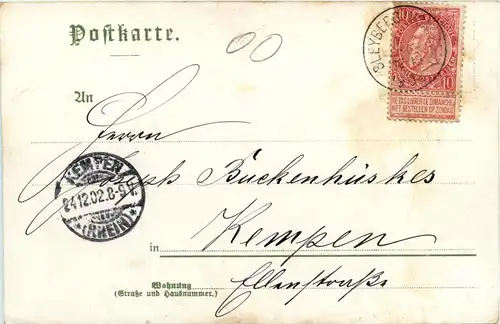 Postkarte.
00
BLEYBERG
10
NE PAS LIVRER LE DIMANCHE
NIET BESTELLEN OP ZONDAG
An
Herrn
Jos. Buckenhüskes
KEMPEN
24.12.02.8-9V.
*(RHEIN)*
in
Kempen
Wohnung
(Straße und Hausnummer.)
Ellenstraße